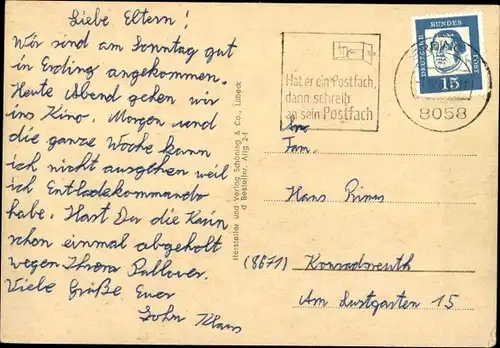 Liebe Eltern!
Wir sind am Sonntag gut
in Erding angekommen.
Heute Abend gehen wir
ins Kino. Morgen und
die ganze Woche kann
ich nicht ausgehen weil
ich Entladekommando
habe. Hast Du die Karin
schon einmal abgeholt
wegen Ihrem Pullover.
Viele Grüße Euer
Sohn Klaus
Hersteller und Verlag Schöning & Co., Lübeck
d Bestellnr. Allg 24
Hat er ein Postfach,
dann schreib
an sein Postfach
DEUTSCHE BUNDES
15
8058
An
Fam.
Hans
(8671) Konradsreuth
Am Lustgarten 15